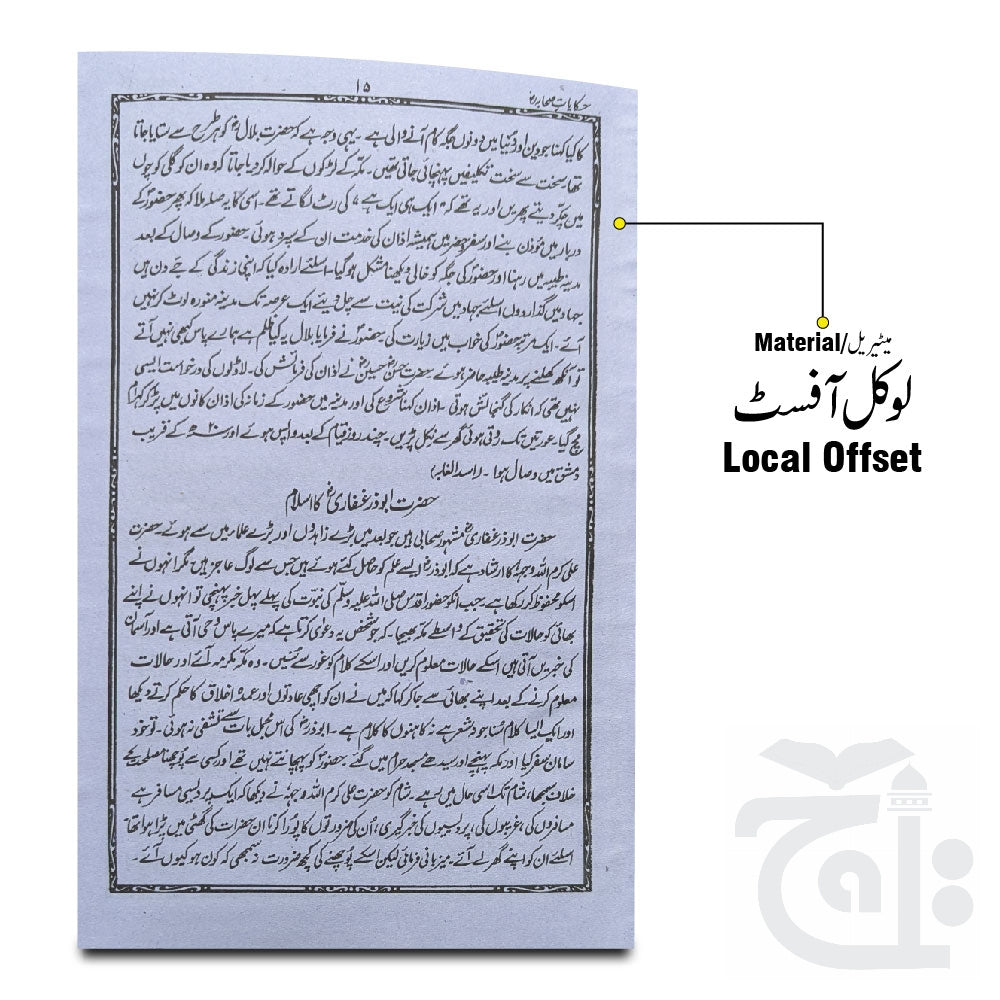 حکایات صحابہ رض
۱۵
کا کیا کہنا جو دین اور دنیا میں دونوں جگہ کام آنے والی ہے۔ یہی وجہ ہے کہ حضرت بلال رض کو ہر طرح سے ستایا جاتا
تھا۔ سخت سے سخت تکلیفیں پہنچائی جاتی تھیں۔ مکہ کے لڑکوں کے حوالہ کر دیا جاتا کہ وہ ان کو گلی کوچوں
میں چکر دیتے پھریں اور یہ تھے کہ "ایک ہی ایک ہے" کی رٹ لگاتے تھے۔ اسی کا یہ صلہ ملا کہ پھر حضور کے
دربار میں مؤذن بنے اور سفر حضر میں ہمیشہ اذان کی خدمت ان کے سپرد ہوئی۔ حضور کے وصال کے بعد
مدینہ طیبہ میں رہنا اور حضور کی جگہ کو خالی دیکھنا مشکل ہو گیا۔ اسلئے ارادہ کیا کہ اپنی زندگی کے جے دن ہیں
جہاد میں گذار دوں اسلئے جہاد میں شرکت کی نیت سے چل دیئے ایک عرصہ تک مدینہ منورہ لوٹ کر نہیں
آئے۔ ایک مرتبہ حضور کی خواب میں زیارت کی حضور نے فرمایا بلال یہ کیا ظلم ہے ہمارے پاس کبھی نہیں آتے
تو آنکھ کھلنے پر مدینہ طیبہ حاضر ہوئے حضرت حسن رض حسین رض نے اذان کی فرمائش کی۔ لاڈلوں کی درخواست ایسی
نہیں تھی کہ انکار کی گنجائش ہوتی۔ اذان کہنا شروع کی اور مدینہ میں حضور کے زمانہ کی اذان کانوں میں پڑ کر کہرام
مچ گیا۔ عورتیں تک روتی ہوئی گھر سے نکل پڑیں۔ چند روز قیام کے بعد واپس ہوئے اور ۲۰ھ کے قریب
دمشق میں وصال ہوا۔ (اسد الغابہ)
حضرت ابوذر غفاری رض کا اسلام
حضرت ابوذر غفاری رض مشہور صحابی ہیں جو بعد میں بڑے زاہدوں اور بڑے علماء میں سے ہوئے حضرت
علی کرم اللہ وجہہ کا ارشاد ہے کہ ابوذر رض ایسے علم کو حاصل کئے ہوئے ہیں جس سے لوگ عاجز ہیں مگر انہوں نے
اسکو محفوظ کر رکھا ہے۔ جب انکو حضور اقدس صلی اللہ علیہ وسلم کی نبوت کی پہلے پہل خبر پہنچی تو انہوں نے اپنے
بھائی کو حالات کی تحقیق کے واسطے مکہ بھیجا۔ کہ جو شخص یہ دعوی کرتا ہے کہ میرے پاس وحی آتی ہے اور آسمان
کی خبریں آتی ہیں اسکے حالات معلوم کریں اور اسکے کلام کو غور سے سنیں۔ وہ مکہ مکرمہ آئے اور حالات
معلوم کرنے کے بعد اپنے بھائی سے جا کر کہا کہ میں نے ان کو اچھی عادتوں اور عمدہ اخلاق کا حکم کرتے دیکھا
اور ایک ایسا کلام سنا جو نہ شعر ہے نہ کاہنوں کا کلام ہے۔ ابوذر رض کی اس مجمل بات سے تشفی نہ ہوئی۔ تو خود
سامان سفر کیا اور مکہ پہنچے اور سیدھے مسجد حرام میں گئے۔ حضور کو پہچانتے نہیں تھے اور کسی سے پوچھنا مصلحت کے
خلاف سمجھا، شام تک اسی حال میں رہے۔ شام کو حضرت علی کرم اللہ وجہہ نے دیکھا کہ ایک پردیسی مسافر ہے
مسافروں کی، غریبوں کی، پردیسیوں کی خبر گیری، ان کی ضرورتوں کا پورا کرنا ان حضرات کی گھٹی میں پڑا ہوا تھا
اسلئے ان کو اپنے گھر لے آئے۔ میزبانی فرمائی لیکن اسکے پوچھنے کی کچھ ضرورت نہ سمجھی کہ کون ہو کیوں آئے۔
Material/میٹیریل
لوکل آفسٹ
Local Offset
تاج